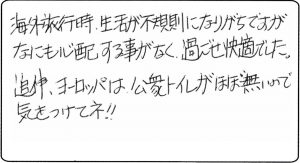 海外旅行時、生活が不規則になりがちですが
なにも心配する事がなく、過ごせ快適でした。
追伸、ヨーロッパは公衆トイレがほぼ無いので
気をつけてネ!!